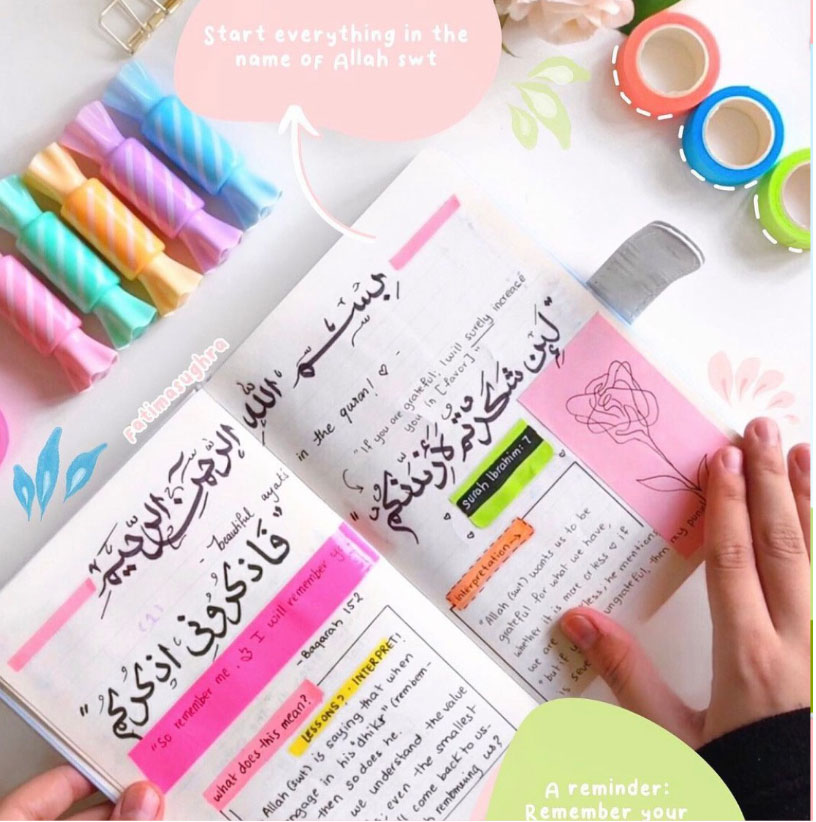 Start everything in the
name of Allah swt
fatimasughra
بِسْمِ اللهِ
الرَّحْمٰنِ الرَّحِيْمِ
- beautiful ayati
in the quran! ♡ -
(1)
"فَاذْكُرُوْنِيْ اَذْكُرْكُمْ"
"So remember me . I will remember y
- Baqarah 152
what does this mean?
LESSONS? - INTERPRET!
Allah (swt) is saying that when
engage in his "dhikr" (remem-
then so does he.
we understand the value
even the smallest
come back to us-
us?
"If you are grateful, I will surely increase
you in [favor]"
"لَئِنْ شَكَرْتُمْ لَأَزِيْدَنَّكُمْ"
Surah Ibrahim: 7
interpretation→
"Allah (swt) wants us to be
grateful for what we have,
whether it is more or less ♡ if
we are less, he mentions
"but if y ungrateful, then my
is seve
A reminder:
Remember your